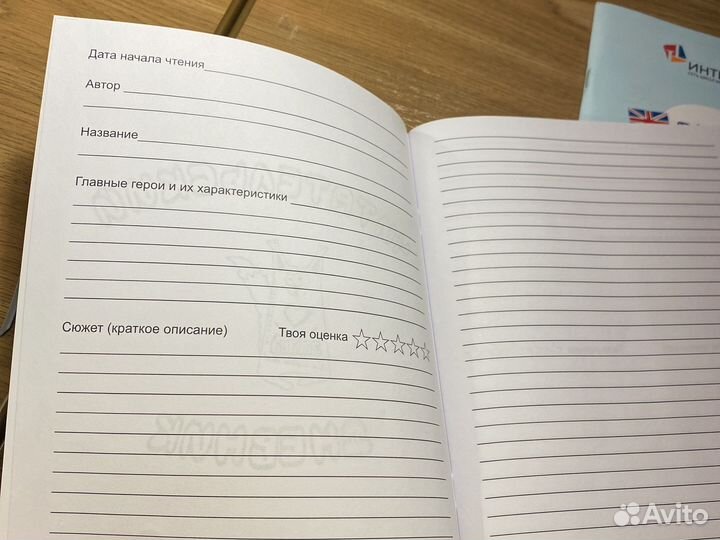 Дата начала чтения
Автор
Название
Главные герои и их характеристики
Сюжет (краткое описание) Твоя оценка
Avito